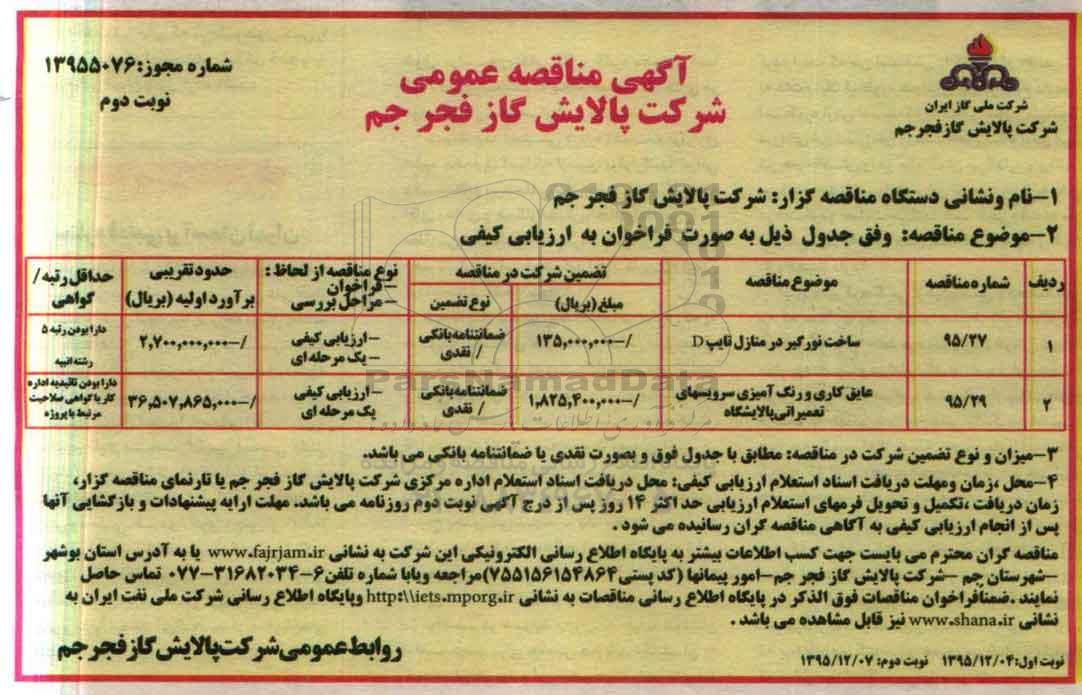 شماره مجوز: ۱۳۹۵۵۰۷۶
نوبت دوم
آگهی مناقصه عمومی
شرکت پالایش گاز فجر جم
شرکت ملی گاز ایران
شرکت پالایش گاز فجر جم
۱–نام ونشانی دستگاه مناقصه گزار: شرکت پالایش گاز فجر جم
۲–موضوع مناقصه: وفق جدول ذیل به صورت فراخوان به ارزیابی کیفی
ردیف | شماره مناقصه | موضوع مناقصه | تضمین شرکت در مناقصه | نوع مناقصه از لحاظ: –فراخوان –مراحل بررسی | حدود تقریبی برآورد اولیه (بریال) | حداقل رتبه / گواهی
مبلغ (بریال) | نوع تضمین
۱ | ۹۵/۲۷ | ساخت نورگیر در منازل تایپ D | ۱۳۵,۰۰۰,۰۰۰–/ | ضمانتنامه بانکی / نقدی | –ارزیابی کیفی –یک مرحله ای | ۲,۷۰۰,۰۰۰,۰۰۰–/ | دارا بودن رتبه ۵ رشته ابنیه
۲ | ۹۵/۲۹ | عایق کاری و رنگ آمیزی سرویسهای تعمیراتی پالایشگاه | ۱,۸۲۵,۴۰۰,۰۰۰–/ | ضمانتنامه بانکی / نقدی | –ارزیابی کیفی یک مرحله ای | ۳۶,۵۰۷,۸۶۵,۰۰۰–/ | دارا بودن تائیدیه اداره کار یا گواهی صلاحیت مرتبط با پروژه
ParsNamadData
۳–میزان و نوع تضمین شرکت در مناقصه: مطابق با جدول فوق و بصورت نقدی یا ضمانتنامه بانکی می باشد.
۴–محل ،زمان ومهلت دریافت اسناد استعلام ارزیابی کیفی: محل دریافت اسناد استعلام اداره مرکزی شرکت پالایش گاز فجر جم یا تارنمای مناقصه گزار،
زمان دریافت ،تکمیل و تحویل فرمهای استعلام ارزیابی حد اکثر ۱۴ روز پس از درج آگهی نوبت دوم روزنامه می باشد. مهلت ارایه پیشنهادات و بازگشایی آنها
پس از انجام ارزیابی کیفی به آگاهی مناقصه گران رسانیده می شود .
مناقصه گران محترم می بایست جهت کسب اطلاعات بیشتر به پایگاه اطلاع رسانی الکترونیکی این شرکت به نشانی www.fajrjam.ir یا به آدرس استان بوشهر
–شهرستان جم –شرکت پالایش گاز فجر جم–امور پیمانها (کد پستی۷۵۵۱۵۶۱۵۴۸۶۴)مراجعه ویابا شماره تلفن۶–۳۱۶۸۲۰۳۴–۰۷۷ تماس حاصل
نمایند .ضمنافراخوان مناقصات فوق الذکر در پایگاه اطلاع رسانی مناقصات به نشانی http:\\iets.mporg.ir وپایگاه اطلاع رسانی شرکت ملی نفت ایران به
نشانی www.shana.ir نیز قابل مشاهده می باشد .
روابط عمومی شرکت پالایش گاز فجر جم
نوبت اول: ۱۳۹۵/۱۲/۰۴ نوبت دوم: ۱۳۹۵/۱۲/۰۷